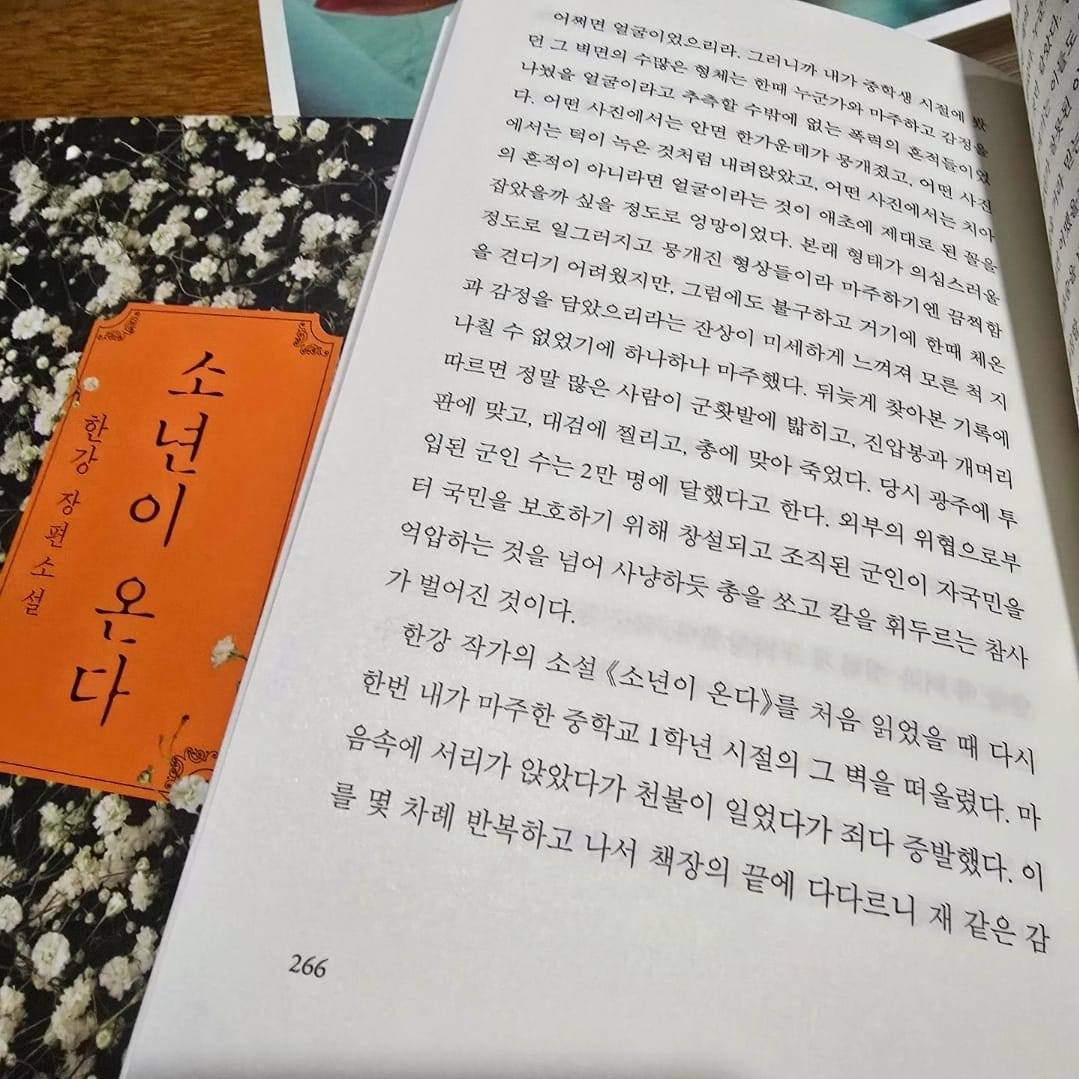 소년이 온다
한강 장편소설
어쩌면 얼굴이었으리라. 그러니까 내가 중학생 시절에 봤
던 그 벽면의 수많은 형체는 한때 누군가와 마주하고 감정을
나눴을 얼굴이라고 추측할 수밖에 없는 폭력의 흔적들이었
다. 어떤 사진에서는 안면 한가운데가 뭉개졌고, 어떤 사진
에서는 턱이 녹은 것처럼 내려앉았고, 어떤 사진에서는 치아
의 흔적이 아니라면 얼굴이라는 것이 애초에 제대로 된 꼴을
잡았을까 싶을 정도로 엉망이었다. 본래 형태가 의심스러울
정도로 일그러지고 뭉개진 형상들이라 마주하기엔 끔찍함
을 견디기 어려웠지만, 그럼에도 불구하고 거기에 한때 체온
과 감정을 담았으리라는 잔상이 미세하게 느껴져 모른 척 지
나칠 수 없었기에 하나하나 마주했다. 뒤늦게 찾아본 기록에
따르면 정말 많은 사람이 군홧발에 밟히고, 진압봉과 개머리
판에 맞고, 대검에 찔리고, 총에 맞아 죽었다. 당시 광주에 투
입된 군인 수는 2만 명에 달했다고 한다. 외부의 위협으로부
터 국민을 보호하기 위해 창설되고 조직된 군인이 자국민을
억압하는 것을 넘어 사냥하듯 총을 쏘고 칼을 휘두르는 참사
가 벌어진 것이다.
한강 작가의 소설 《소년이 온다》를 처음 읽었을 때 다시
한번 내가 마주한 중학교 1학년 시절의 그 벽을 떠올렸다. 마
음속에 서리가 앉았다가 천불이 일었다가 죄다 증발했다. 이
를 몇 차례 반복하고 나서 책장의 끝에 다다르니 재 같은 감
266